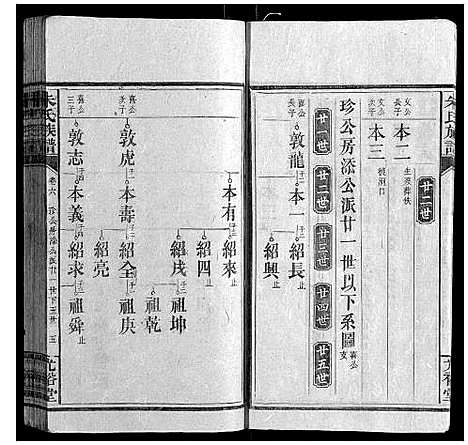 朱氏族譜
廿二世
文公
長子
本二
生歿葬佚
文公
次子
本三
珍公房添公派廿一世以下系圖
喜公
支
廿一世
廿二世
廿三世
廿四世
廿五世
喜公
長子
敦龍
本一
紹長
止
紹興
止
本有
紹來
止
紹四
止
紹戌
祖坤
止
祖乾
止
喜公
次子
敦虎
本壽
紹全
祖庚
止
紹亮
止
喜公
三子
敦志
本義
紹求
祖舜
止
朱氏族譜
卷六
珍公房添公派
廿一世
廿五世
五